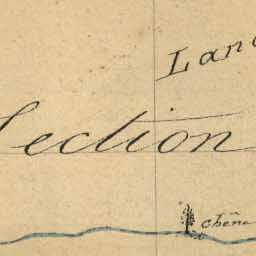 Land
Section
chêne